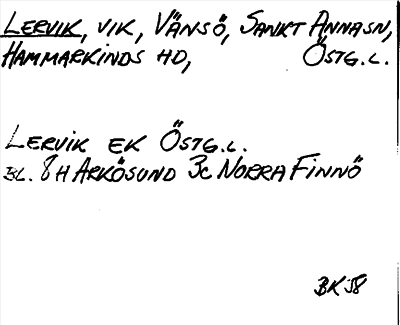 LERVIK, VIK, VÄNSÖ, SANKT ANNA SN,
HAMMARKINDS HD, ÖSTG.L.
LERVIK EK ÖSTG.L.
BL. 8H ARKÖSUND 3C NORRA FINNÖ
BK 58